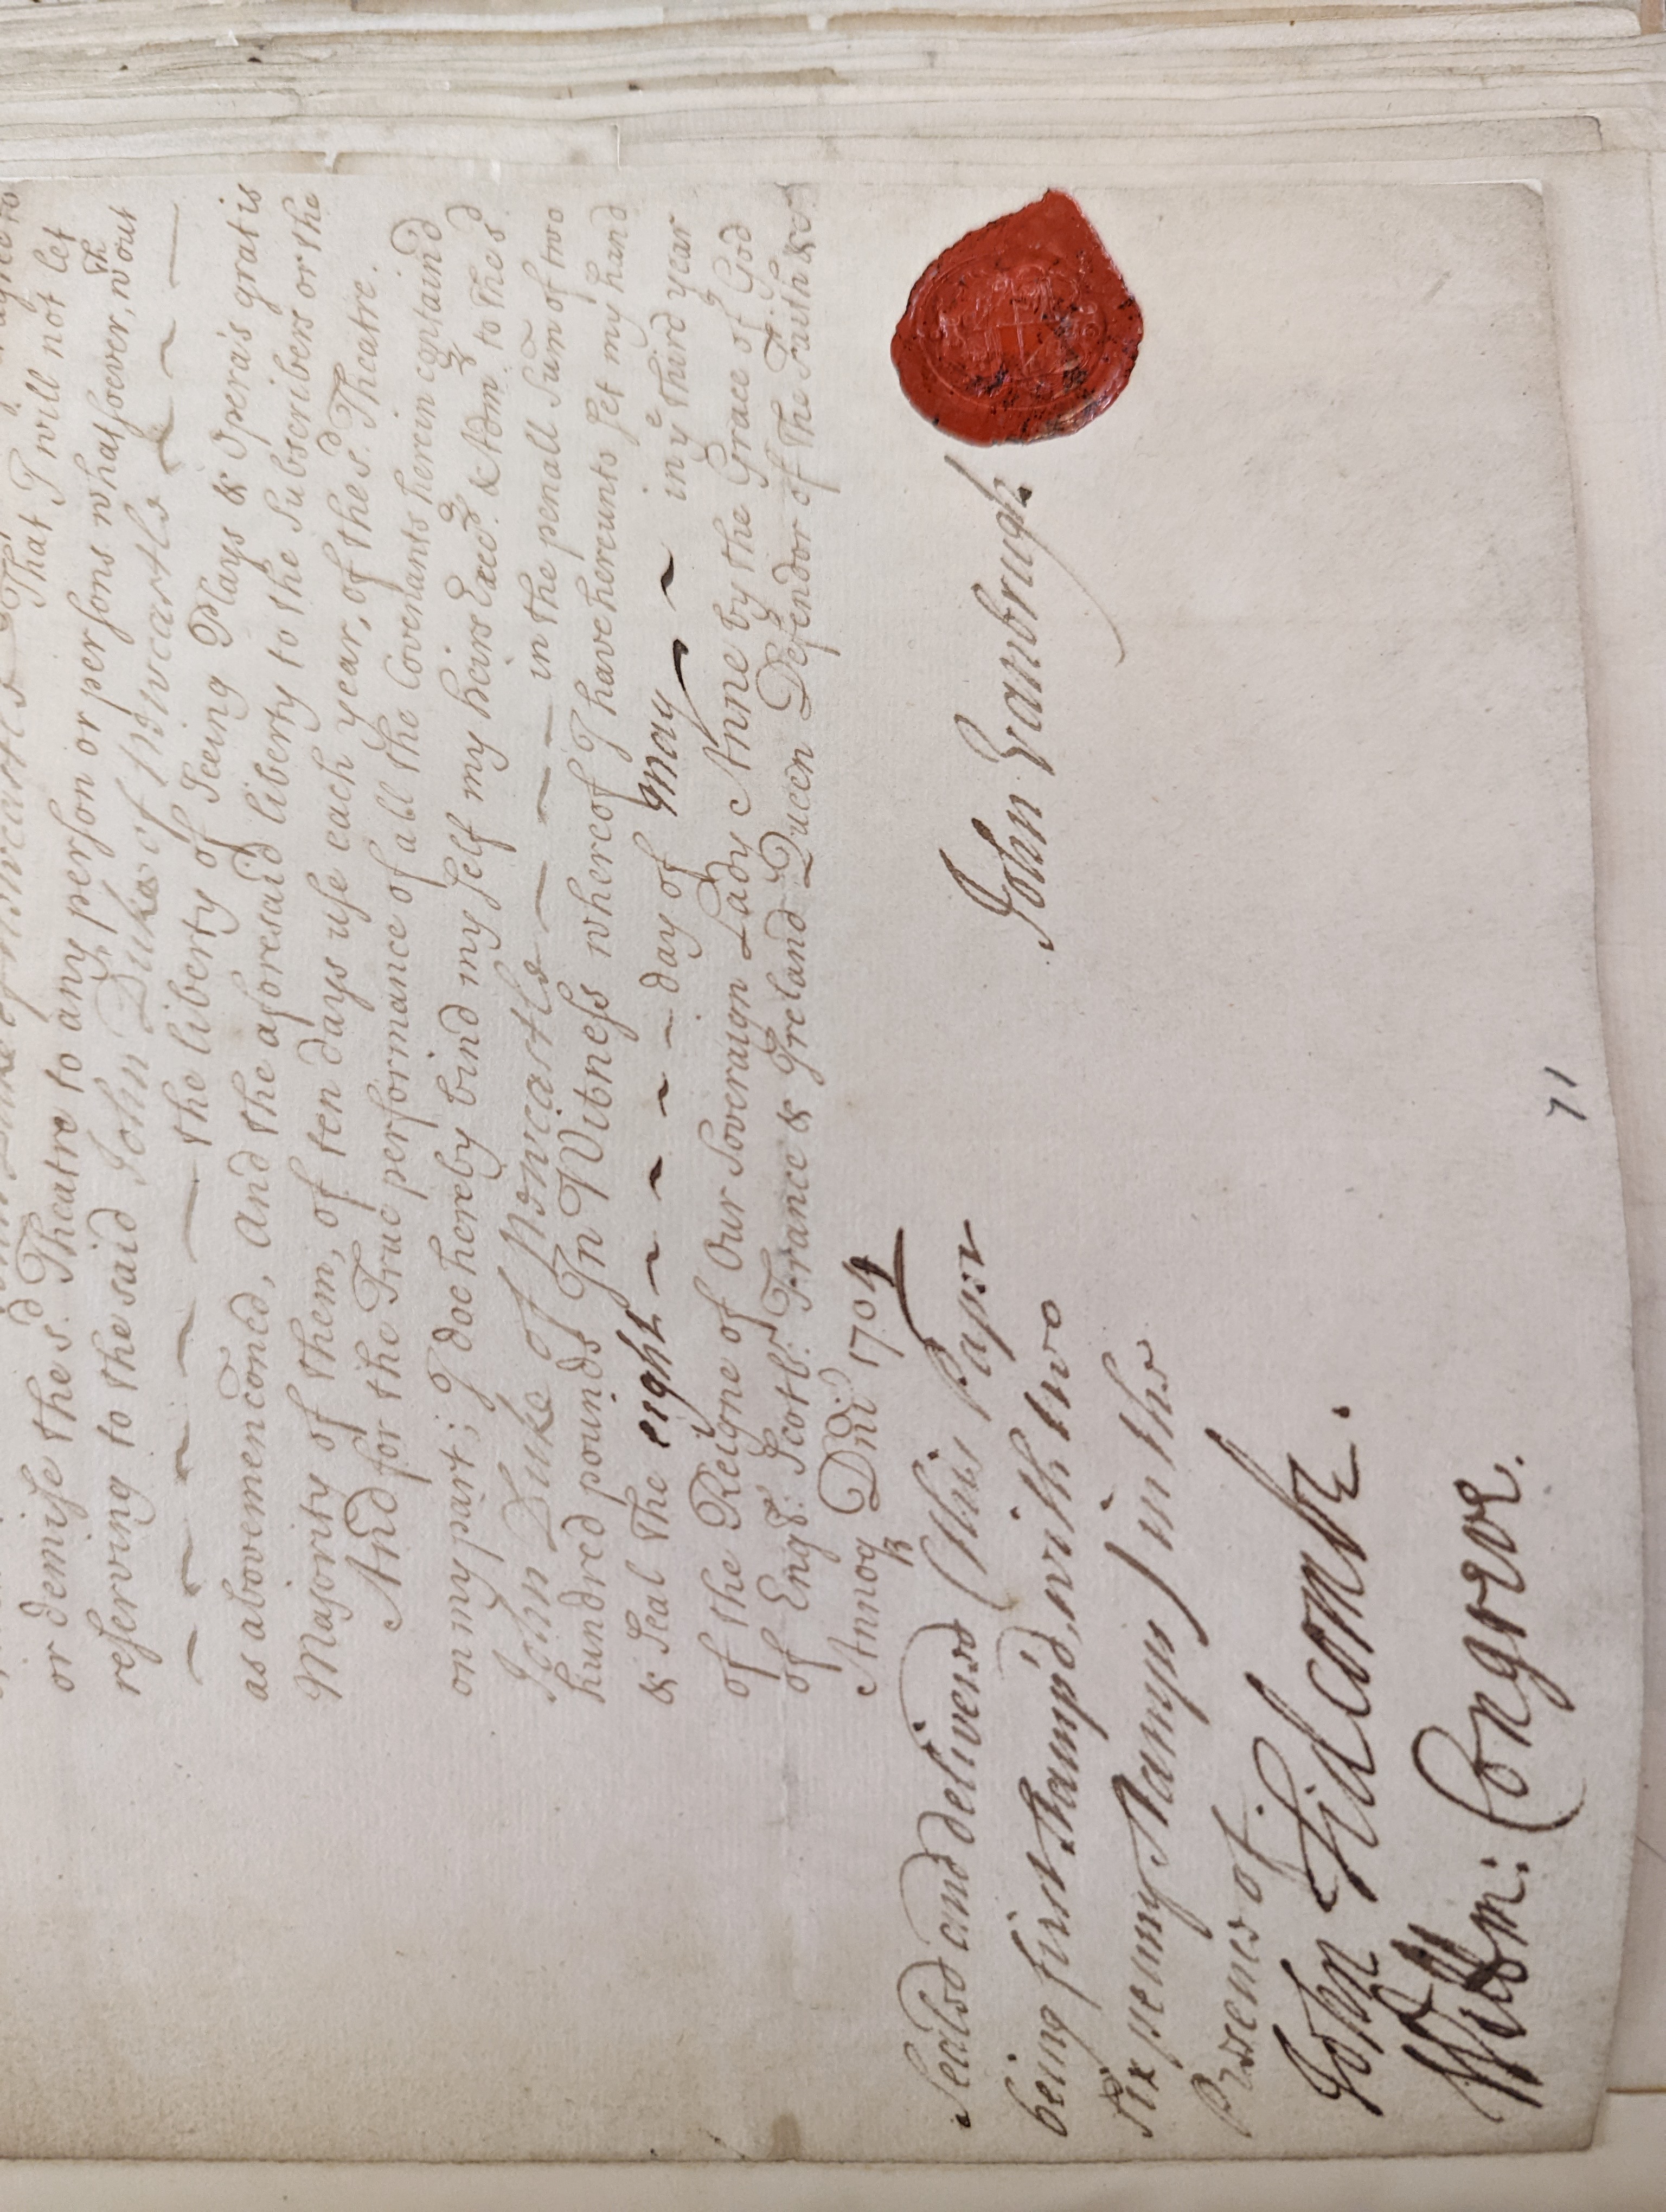 That I will not let
or demise the s.d Theatre to any person or persons whatsoever, w.th out
reserving to the said John Duke of Newcastle
the liberty of Seeing Plays & Opera's gratis
as abovemenconed, And the aforesaid liberty to the Subscribers or the
Majority of them, of ten days use each year, of the s.d Theatre.
And for the True performance of all the Covenants herein contained
on my part; I doe hereby bind my self my heirs Exec.rs & Adm.rs to the s.d
John Duke of Newcastle in the penall Sum of two
hundred pounds In Witness whereof I have hereunto set my hand
& Seal the eight day of may in y.e third year
of the Reigne of Our Soveraign Lady Anne by the Grace of God
of Engl.d: Scotl.d: France & Ireland Queen Defendor of the Faith &c
Annoq Dni 1704
John Vanbrugh
Sealed and delivered (this paper
being first stamp'd, with two
six penny stamps) in the
Presence of
John Hidcombe.
Will:m: Congreve.
71